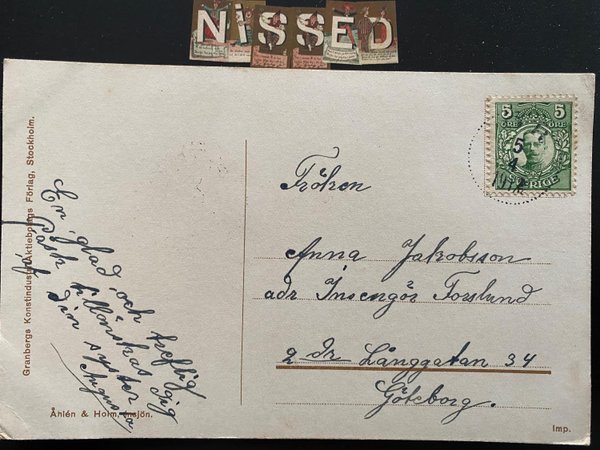 NiSSED
5 5
ÖRE ÖRE
SVERIGE
5
4
Fröken
Anna Jakobsson
adr Insengör Forslund
2 dr Långgatan 34
Göteborg.
En glad och treflig
Påsk tillönskas dig
af din syster
Augusta
Granbergs Konstindustri-Aktiebolags Förlag, Stockholm.
Åhlén & Holm, Insjön.
Imp.